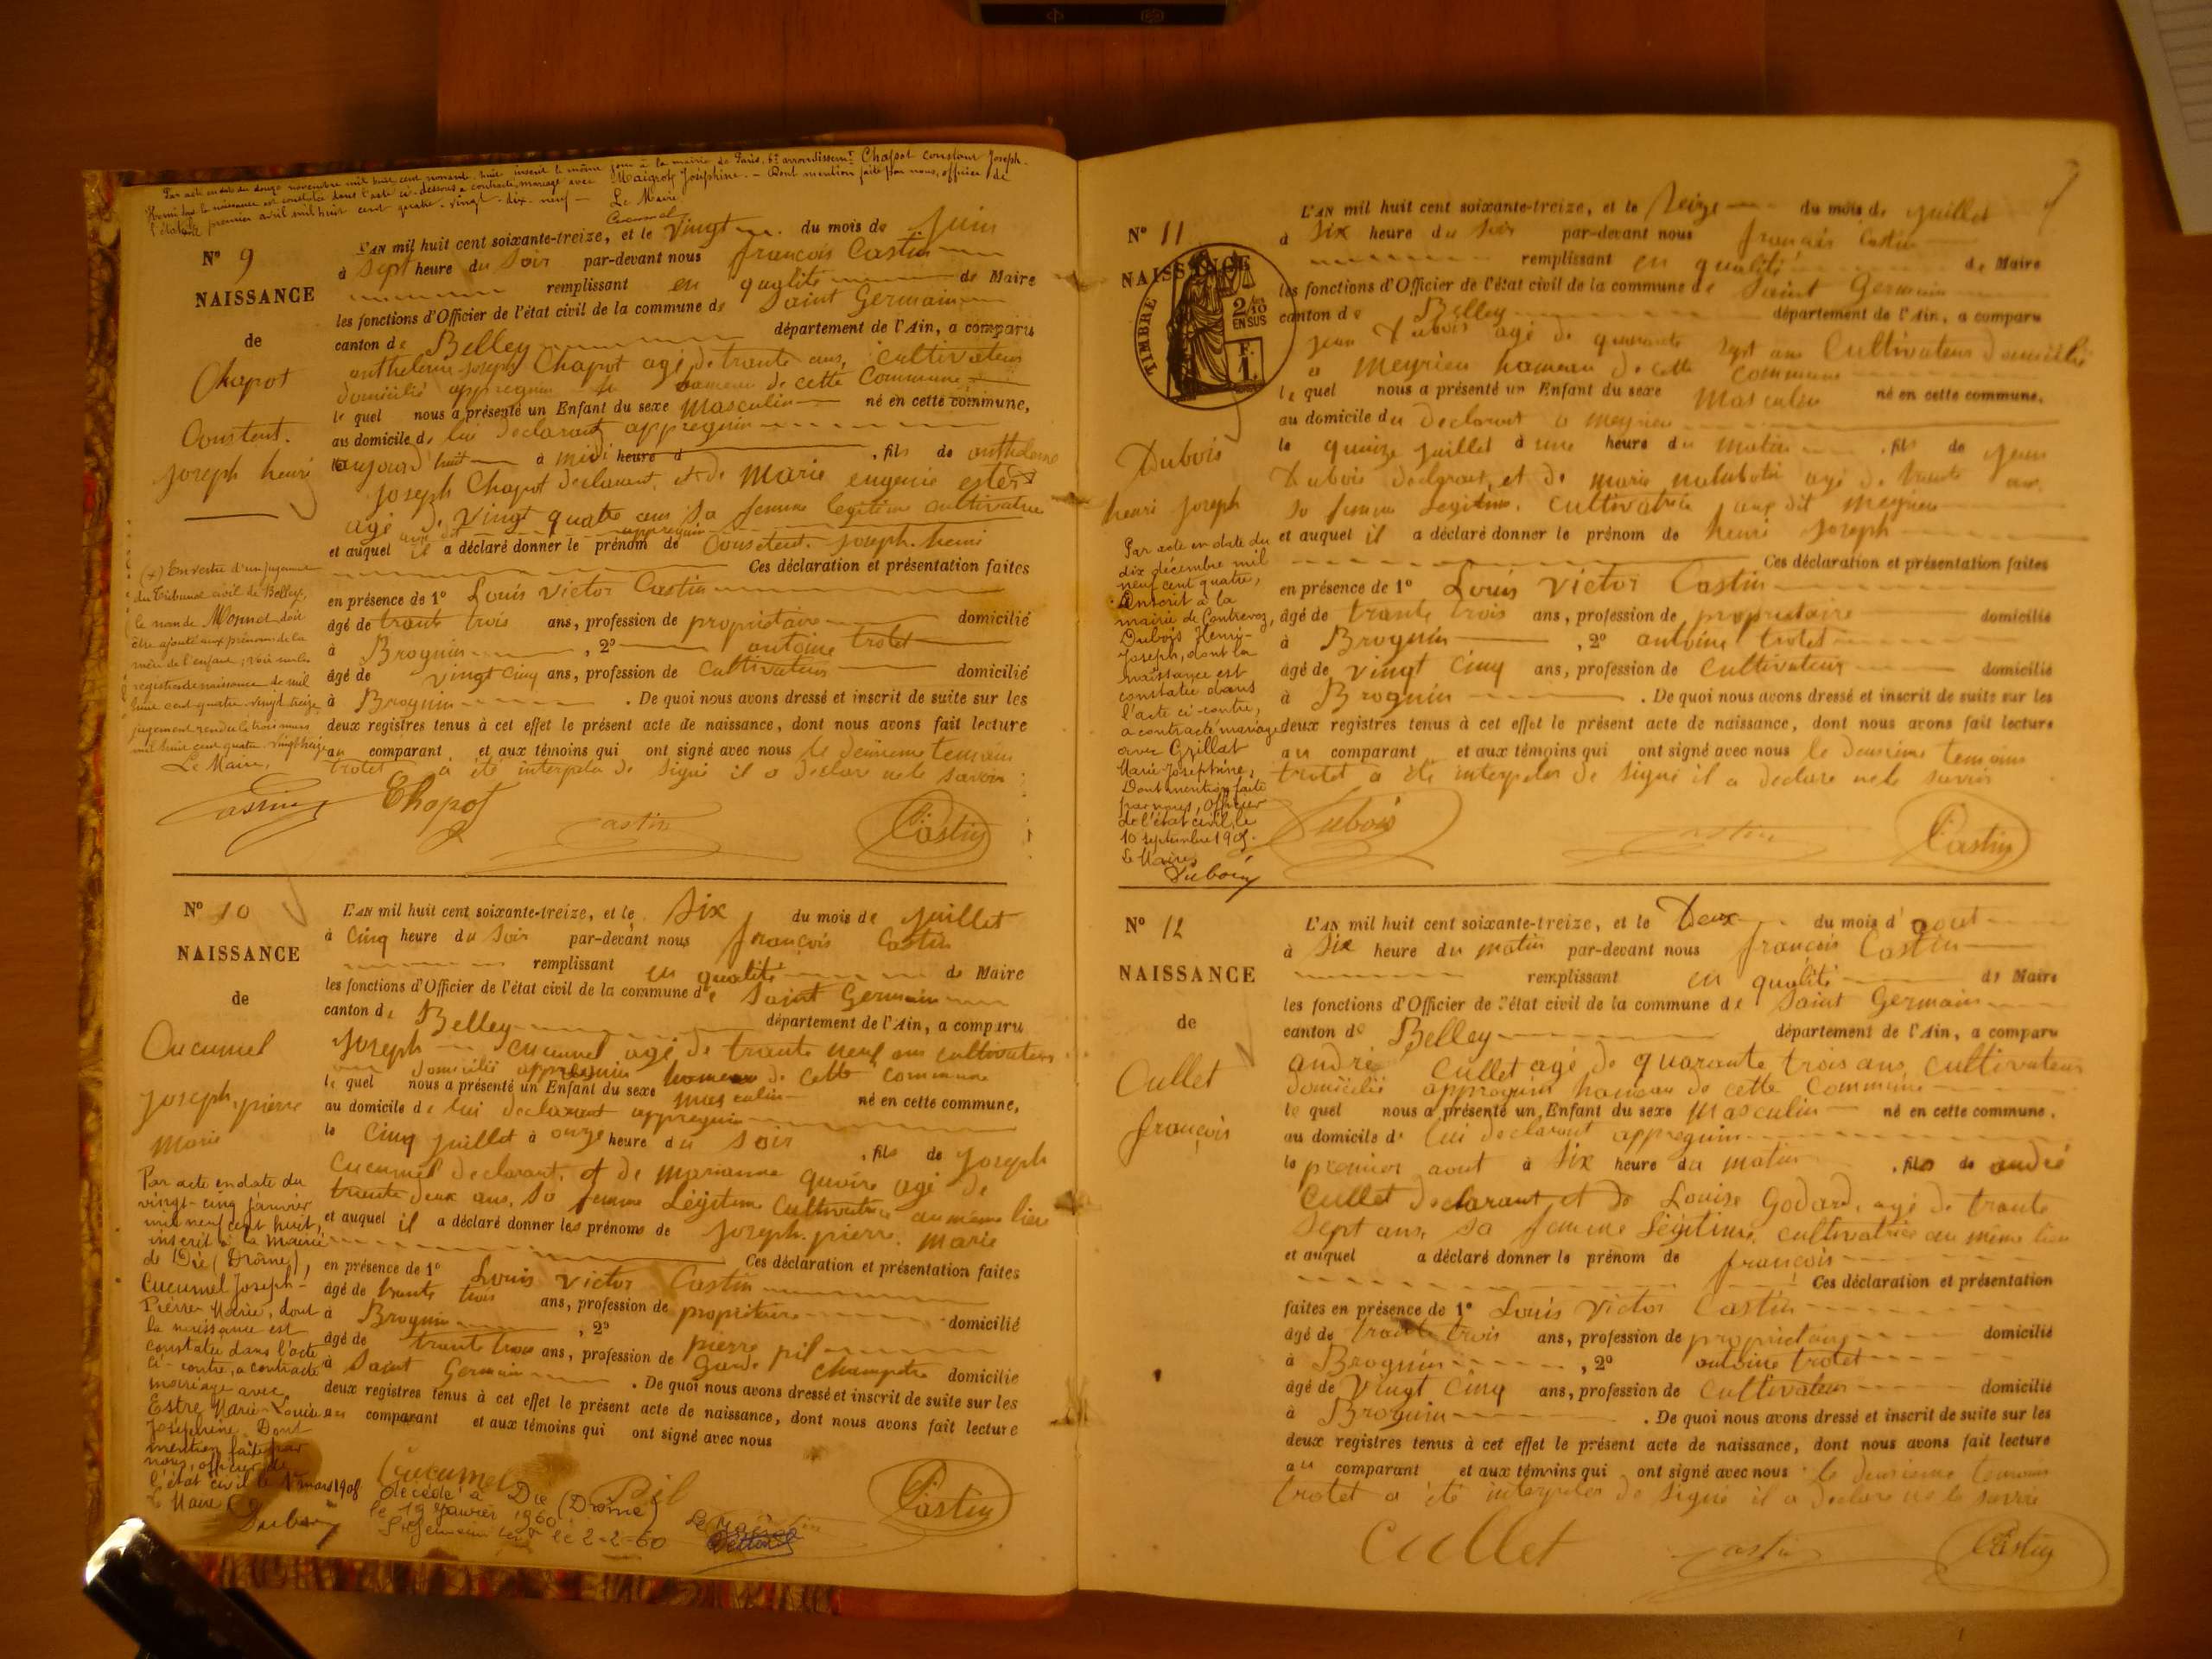 Par acte en date du douze novembre mil huit cent nonante huit inscrit le même jour à la mairie de Paris, arrondissemt Chapot Constant Joseph
Henri dont la naissance est constatée dans l'acte ci-dessous a contracté mariage avec Joséphine. – Dont mention faite par nous, officier de
l'état civil premier avril mil huit cent quatre-vingt-dix-neuf – Le Maire.
Cucumel
N° 9
NAISSANCE
de
Chapot
Constent.
joseph henri
(x) En vertu d'un jugement
du Tribunal civil de Belley,
le nom de Monnet doit
être ajouté aux prénoms de la
mère de l'enfant, voir sur les
registres de naissance de mil
huit cent quatre-vingt treize
jugement rendu le trois mars
mil huit cent quatre-vingt treize
Le Maire,
L'AN mil huit cent soixante-treize, et le vingt du mois de juin
à sept heure du soir par-devant nous françois Castin
remplissant en qualité de Maire
les fonctions d'Officier de l'état civil de la commune de Saint Germain
canton de Belley département de l'Ain, a comparu
anthelme joseph Chapot agé de trante ans, cultivateur
domicilié appregnin hameau de cette Commune
le quel nous a présenté un Enfant du sexe Masculin né en cette commune,
au domicile de lui declarant appregnin
aujourd huit à midi heure d , fils de anthelme
joseph Chapot declarant, et de Marie eugenie ester
agé de vingt quatre ans sa femme legitime cultivatrice
appregnin
et auquel il a déclaré donner le prénom de Constent. joseph. henri
Ces déclaration et présentation faites
en présence de 1° Louis Victor Castin
âgé de trante trois ans, profession de propriétaire domicilié
à Brognin , 2° antoine trolet
âgé de vingt cinq ans, profession de cultivateur domicilié
à Brognin . De quoi nous avons dressé et inscrit de suite sur les
deux registres tenus à cet effet le présent acte de naissance, dont nous avons fait lecture
au comparant et aux témoins qui ont signé avec nous le deuxieme temoin
trolet a été interpeler de signé il a declaré ne le savoir
Castin Chapot Castin Castin
N° 10
NAISSANCE
de
Cucumel
joseph, pierre
marie
Par acte en date du
vingt-cinq janvier
mil neuf cent huit,
inscrit à la mairie
de Die (Drôme),
Cucumel Joseph-
Pierre Marie, dont
la naissance est
constatée dans l'acte
ci-contre, a contracté
mariage avec
Estre Marie-Louise
Joséphine. Dont
mention faite par
nous, officier de
l'état civil le 1er mars 1908
Le Maire
L'AN mil huit cent soixante-treize, et le Six du mois de juillet
à cinq heure du soir par-devant nous françois Castin
remplissant en qualité de Maire
les fonctions d'Officier de l'état civil de la commune de Saint Germain
canton de Belley département de l'Ain, a comparu
joseph cucumel agé de trante neuf ans cultivateur
domicilié appregnin hameau de cette commune
le quel nous a présenté un Enfant du sexe masculin né en cette commune,
au domicile de lui declarant appregnin
le cinq juillet à onze heure du soir , fils de joseph
cucumel declarant, et de marianne quoire agé de
trante deux ans, sa femme Légitime Cultivatrice au même lieu
et auquel il a déclaré donner les prénoms de joseph. pierre. marie
Ces déclaration et présentation faites
en présence de 1° Louis Victor Castin
âgé de trante trois ans, profession de propriétaire domicilié
à Brognin , 2° pierre pil
âgé de trante trois ans, profession de garde champetre domicilié
à Saint Germain . De quoi nous avons dressé et inscrit de suite sur les
deux registres tenus à cet effet le présent acte de naissance, dont nous avons fait lecture
au comparant et aux témoins qui ont signé avec nous
Cucumel Pil Castin
décédé à Die (Drôme)
le 19 janvier 1960
St Germain le 2-2-60 Le Maire
N° 11
NAISSANCE
TIMBRE
2/10
EN SUS
Dubois
henri joseph
Par acte en date du
dix décembre mil
neuf cent quatre,
inscrit à la
mairie de Contrevoz,
Dubois Henri-
Joseph, dont la
naissance est
constatée dans
l'acte ci-contre,
a contracté mariage
avec Grillat
Marie-Joséphine.
Dont mention faite
par nous, Officier
de l'état civil, le
10 septembre 1905.
Le Maire,
L'AN mil huit cent soixante-treize, et le seize du mois de juillet
à six heure du soir par-devant nous françois Castin
remplissant en qualité de Maire
les fonctions d'Officier de l'état civil de la commune de Saint Germain
canton de Belley département de l'Ain, a comparu
jean Dubois agé de quarante sept ans Cultivateur domicilié
a meyrieu hameau de cette commune
le quel nous a présenté un Enfant du sexe Masculin né en cette commune,
au domicile du declarant a meyrieu
le quinze juillet à une heure du matin , fils de jean
Dubois declarant, et de marie agé de trante ans
sa femme Legitime, cultivatrice au dit meyrieu
et auquel il a déclaré donner le prénom de henri joseph
Ces déclaration et présentation faites
en présence de 1° Louis Victor Castin
âgé de trante trois ans, profession de propriétaire domicilié
à Brognin , 2° antoine trolet
âgé de vingt cinq ans, profession de cultivateur domicilié
à Brognin . De quoi nous avons dressé et inscrit de suite sur les
deux registres tenus à cet effet le présent acte de naissance, dont nous avons fait lecture
au comparant et aux témoins qui ont signé avec nous le deuxieme temoin
trolet a été interpeler de signé il a declaré ne le savoir
Dubois Castin Castin
N° 12
NAISSANCE
de
Cullet
françois
L'AN mil huit cent soixante-treize, et le Deux du mois d'aout
à six heure du matin par-devant nous françois Castin
remplissant en qualité de Maire
les fonctions d'Officier de l'état civil de la commune de Saint Germain
canton de Belley département de l'Ain, a comparu
andré cullet agé de quarante trois ans, cultivateur
domicilié appregnin hameau de cette Commune
le quel nous a présenté un Enfant du sexe Masculin né en cette commune,
au domicile de lui declarant appregnin
le premier aout à six heure du matin , fils de andré
cullet declarant et de Louise Godard, agé de trante
sept ans, sa femme Légitime, cultivatrice au même lieu
et auquel a déclaré donner le prénom de françois
Ces déclaration et présentation
faites en présence de 1° Louis Victor Castin
âgé de trante trois ans, profession de propriétaire domicilié
à Brognin , 2° antoine trolet
âgé de vingt cinq ans, profession de cultivateur domicilié
à Brognin . De quoi nous avons dressé et inscrit de suite sur les
deux registres tenus à cet effet le présent acte de naissance, dont nous avons fait lecture
au comparant et aux témoins qui ont signé avec nous le deuxieme temoin
trolet a été interpeler de signé il a declaré ne le savoir
Cullet Castin Castin